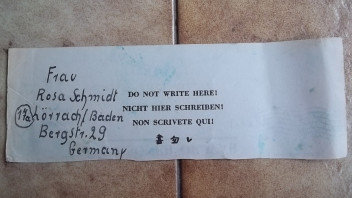 Frau
Rosa Schmidt
(17a) Lörrach/Baden
Bergstr. 29
Germany
DO NOT WRITE HERE!
NICHT HIER SCHREIBEN!
NON SCRIVETE QUI!